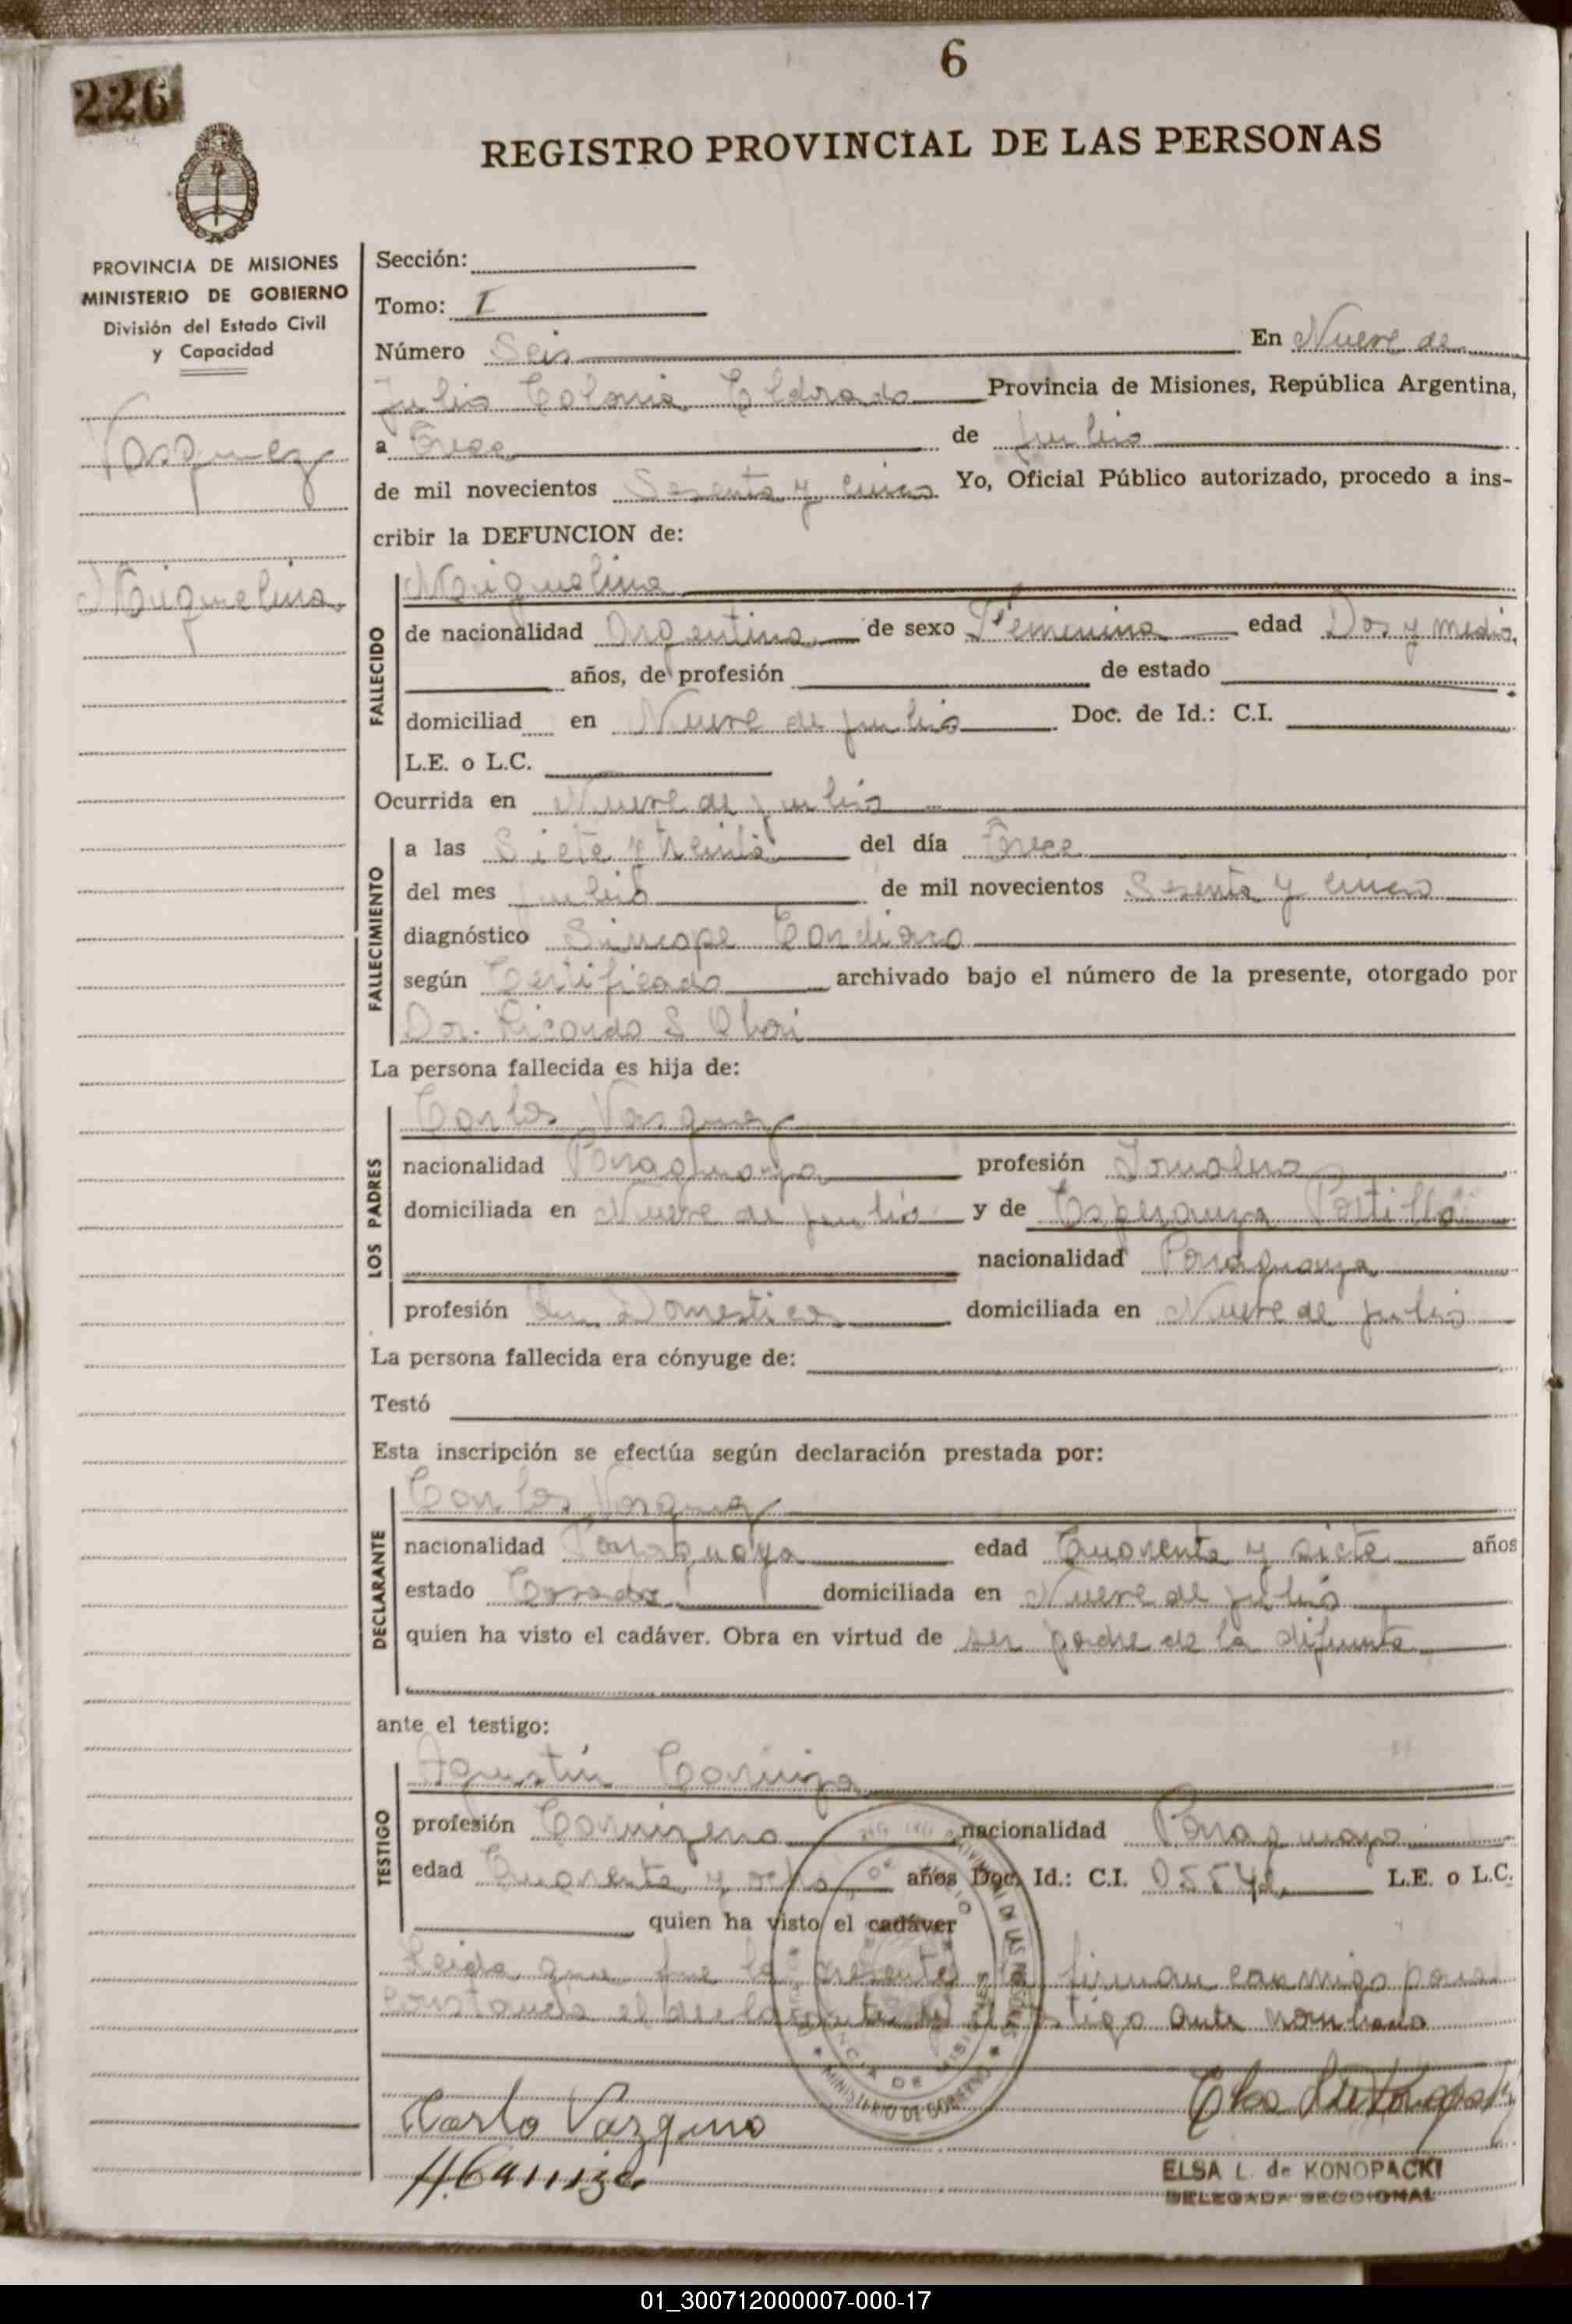 6
226
REGISTRO PROVINCIAL DE LAS PERSONAS
PROVINCIA DE MISIONES
MINISTERIO DE GOBIERNO
División del Estado Civil
y Capacidad
Vasquez
Miguelina
Sección:
Tomo: I
Número Seis En Nueve de
Julio Colonia Eldorado Provincia de Misiones, República Argentina,
a Trece de Julio
de mil novecientos Sesenta y cinco Yo, Oficial Público autorizado, procedo a ins-
cribir la DEFUNCION de:
FALLECIDO
Miguelina
de nacionalidad Argentina de sexo Femenino edad Dos y medio
años, de profesión de estado
domiciliad en Nueve de julio Doc. de Id.: C.I.
L.E. o L.C.
Ocurrida en Nueve de julio
FALLECIMIENTO
a las Siete y treinta del día Trece
del mes julio de mil novecientos Sesenta y cinco
diagnóstico Sincope Cardiaco
según Certificado archivado bajo el número de la presente, otorgado por
Dor. Ricardo S
La persona fallecida es hija de:
LOS PADRES
Carlos Vasquez
nacionalidad Paraguaya profesión
domiciliada en Nueve de julio y de Esperanza Portillo
nacionalidad Paraguaya
profesión Domestica domiciliada en Nueve de julio
La persona fallecida era cónyuge de:
Testó
Esta inscripción se efectúa según declaración prestada por:
DECLARANTE
Carlos Vasquez
nacionalidad Paraguaya edad Cuarenta y siete años
estado Casado domiciliada en Nueve de julio
quien ha visto el cadáver. Obra en virtud de ser padre de la difunta
ante el testigo:
TESTIGO
Agustín Caniza
profesión nacionalidad Paraguayo
edad Cuarenta y ocho años Doc. Id.: C.I. L.E. o L.C.
quien ha visto el cadáver
Leida que fue la presente la firman conmigo para
constancia el declarante y el testigo ante nombrado
MINISTERIO DE GOBIERNO
Carlo
ELSA L. de KONOPACKI
DELEGADA SECCIONAL
01_300712000007-000-17